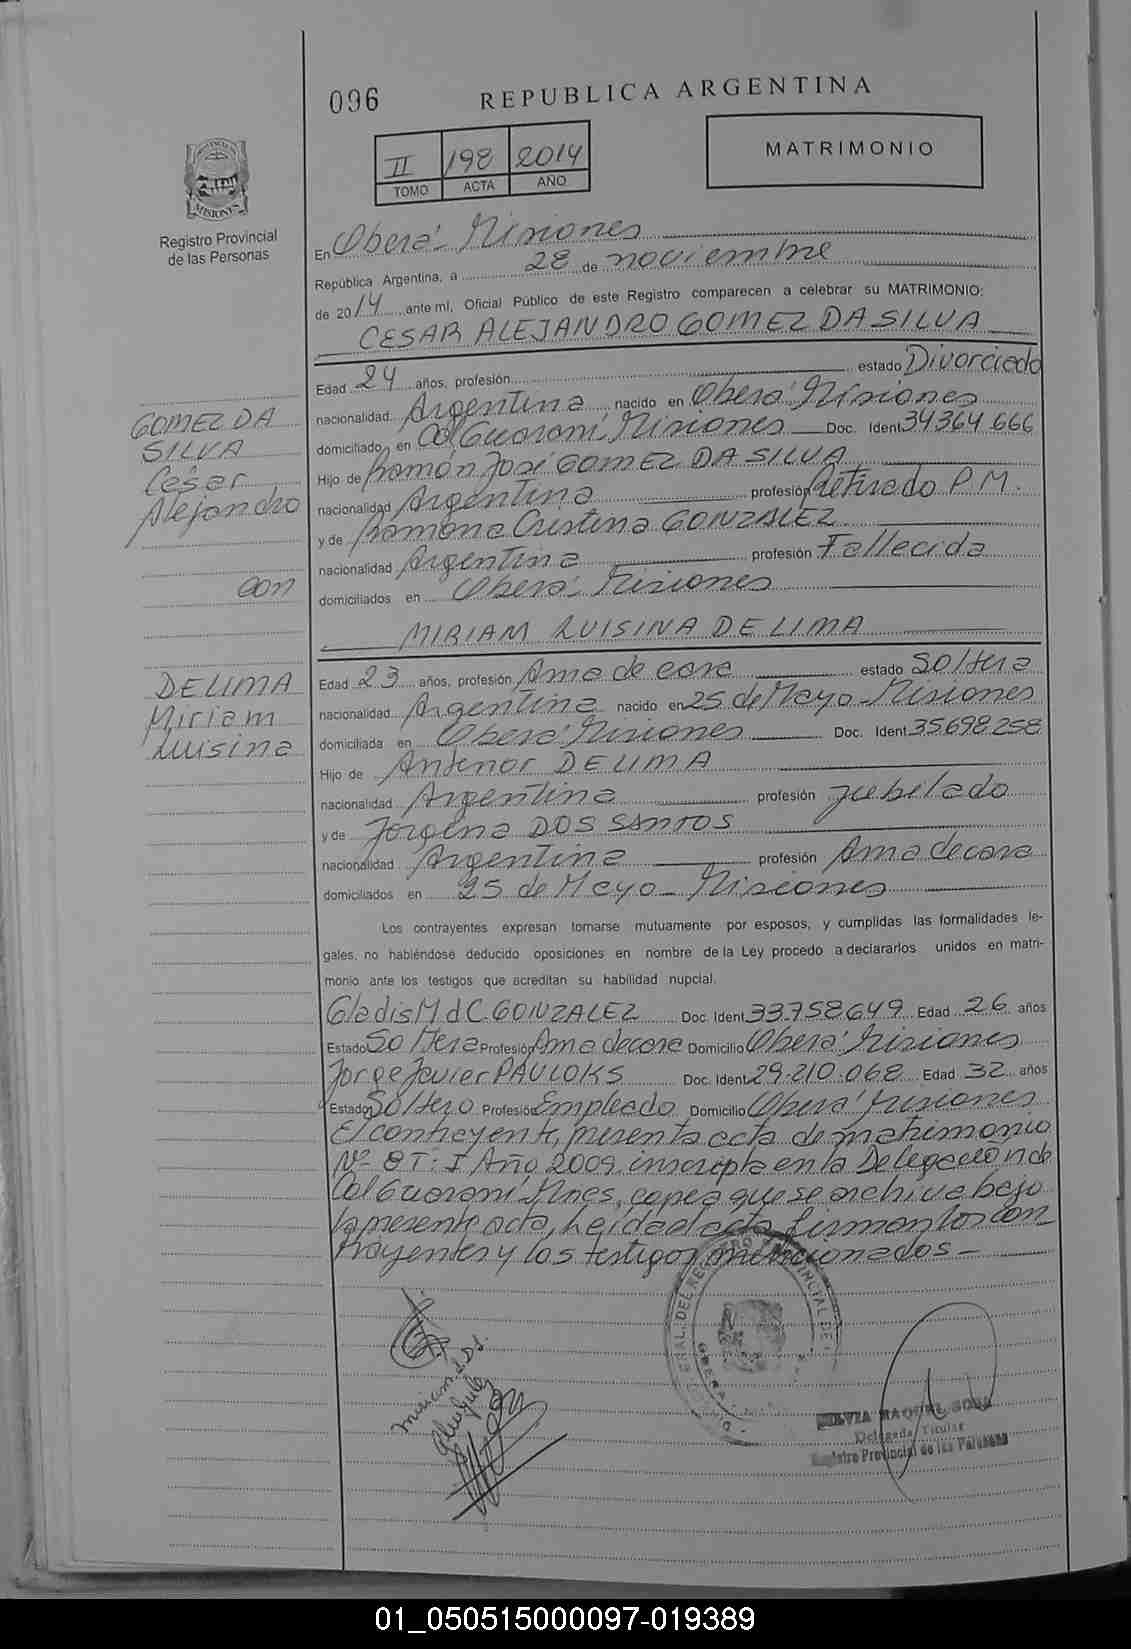 096
REPUBLICA ARGENTINA
II 198 2014
TOMO ACTA AÑO
MATRIMONIO
MISIONES
Registro Provincial
de las Personas
En Oberá - Misiones
República Argentina, a 28 de noviembre
de 2014 ante mí, Oficial Público de este Registro comparecen a celebrar su MATRIMONIO:
CESAR ALEJANDRO GOMEZ DA SILVA
Edad 24 años, profesión estado Divorciado
nacionalidad Argentina nacido en Oberá Misiones
domiciliado en Col Guaraní, Misiones Doc. Ident 34364.666
Hijo de Ramón José GOMEZ DA SILVA
nacionalidad Argentina profesión Retirado P.M.
y de Ramona Cristina GONZALEZ
nacionalidad Argentina profesión Fallecida
domiciliados en Oberá - Misiones
GOMEZ DA
SILVA
César
Alejandro
con
DE LIMA
Miriam
Luisina
MIRIAM LUISINA DE LIMA
Edad 23 años, profesión Ama de casa estado Soltera
nacionalidad Argentina nacido en 25 de Mayo - Misiones
domiciliada en Oberá Misiones Doc. Ident 35.698.258
Hijo de Antenor DE LIMA
nacionalidad Argentina profesión Jubilado
y de Jorgina DOS SANTOS
nacionalidad Argentina profesión Ama de casa
domiciliados en 25 de Mayo - Misiones
Los contrayentes expresan tomarse mutuamente por esposos, y cumplidas las formalidades le-
gales, no habiéndose deducido oposiciones en nombre de la Ley procedo a declararlos unidos en matri-
monio ante los testigos que acreditan su habilidad nupcial.
Gladis M d C. GONZALEZ Doc. Ident 33.758649 Edad 26 años
Estado Soltera Profesión Ama de casa Domicilio Oberá Misiones
Jorge Javier PAULOKS Doc. Ident 29.210.068 Edad 32 años
Estado Soltero Profesión Empleado Domicilio Oberá Misiones
El contrayente, presenta acta de matrimonio
Nº 8 T: I Año 2009 inscripta en la Delegación de
Col Guaraní Mnes, copia que se archiva bajo
la presente acta, Leída el acta firman los con-
trayentes y los testigos mencionados -
SILVIA RAQUEL SOSA
Delegada Titular
Registro Provincial de las Personas
01_050515000097-019389